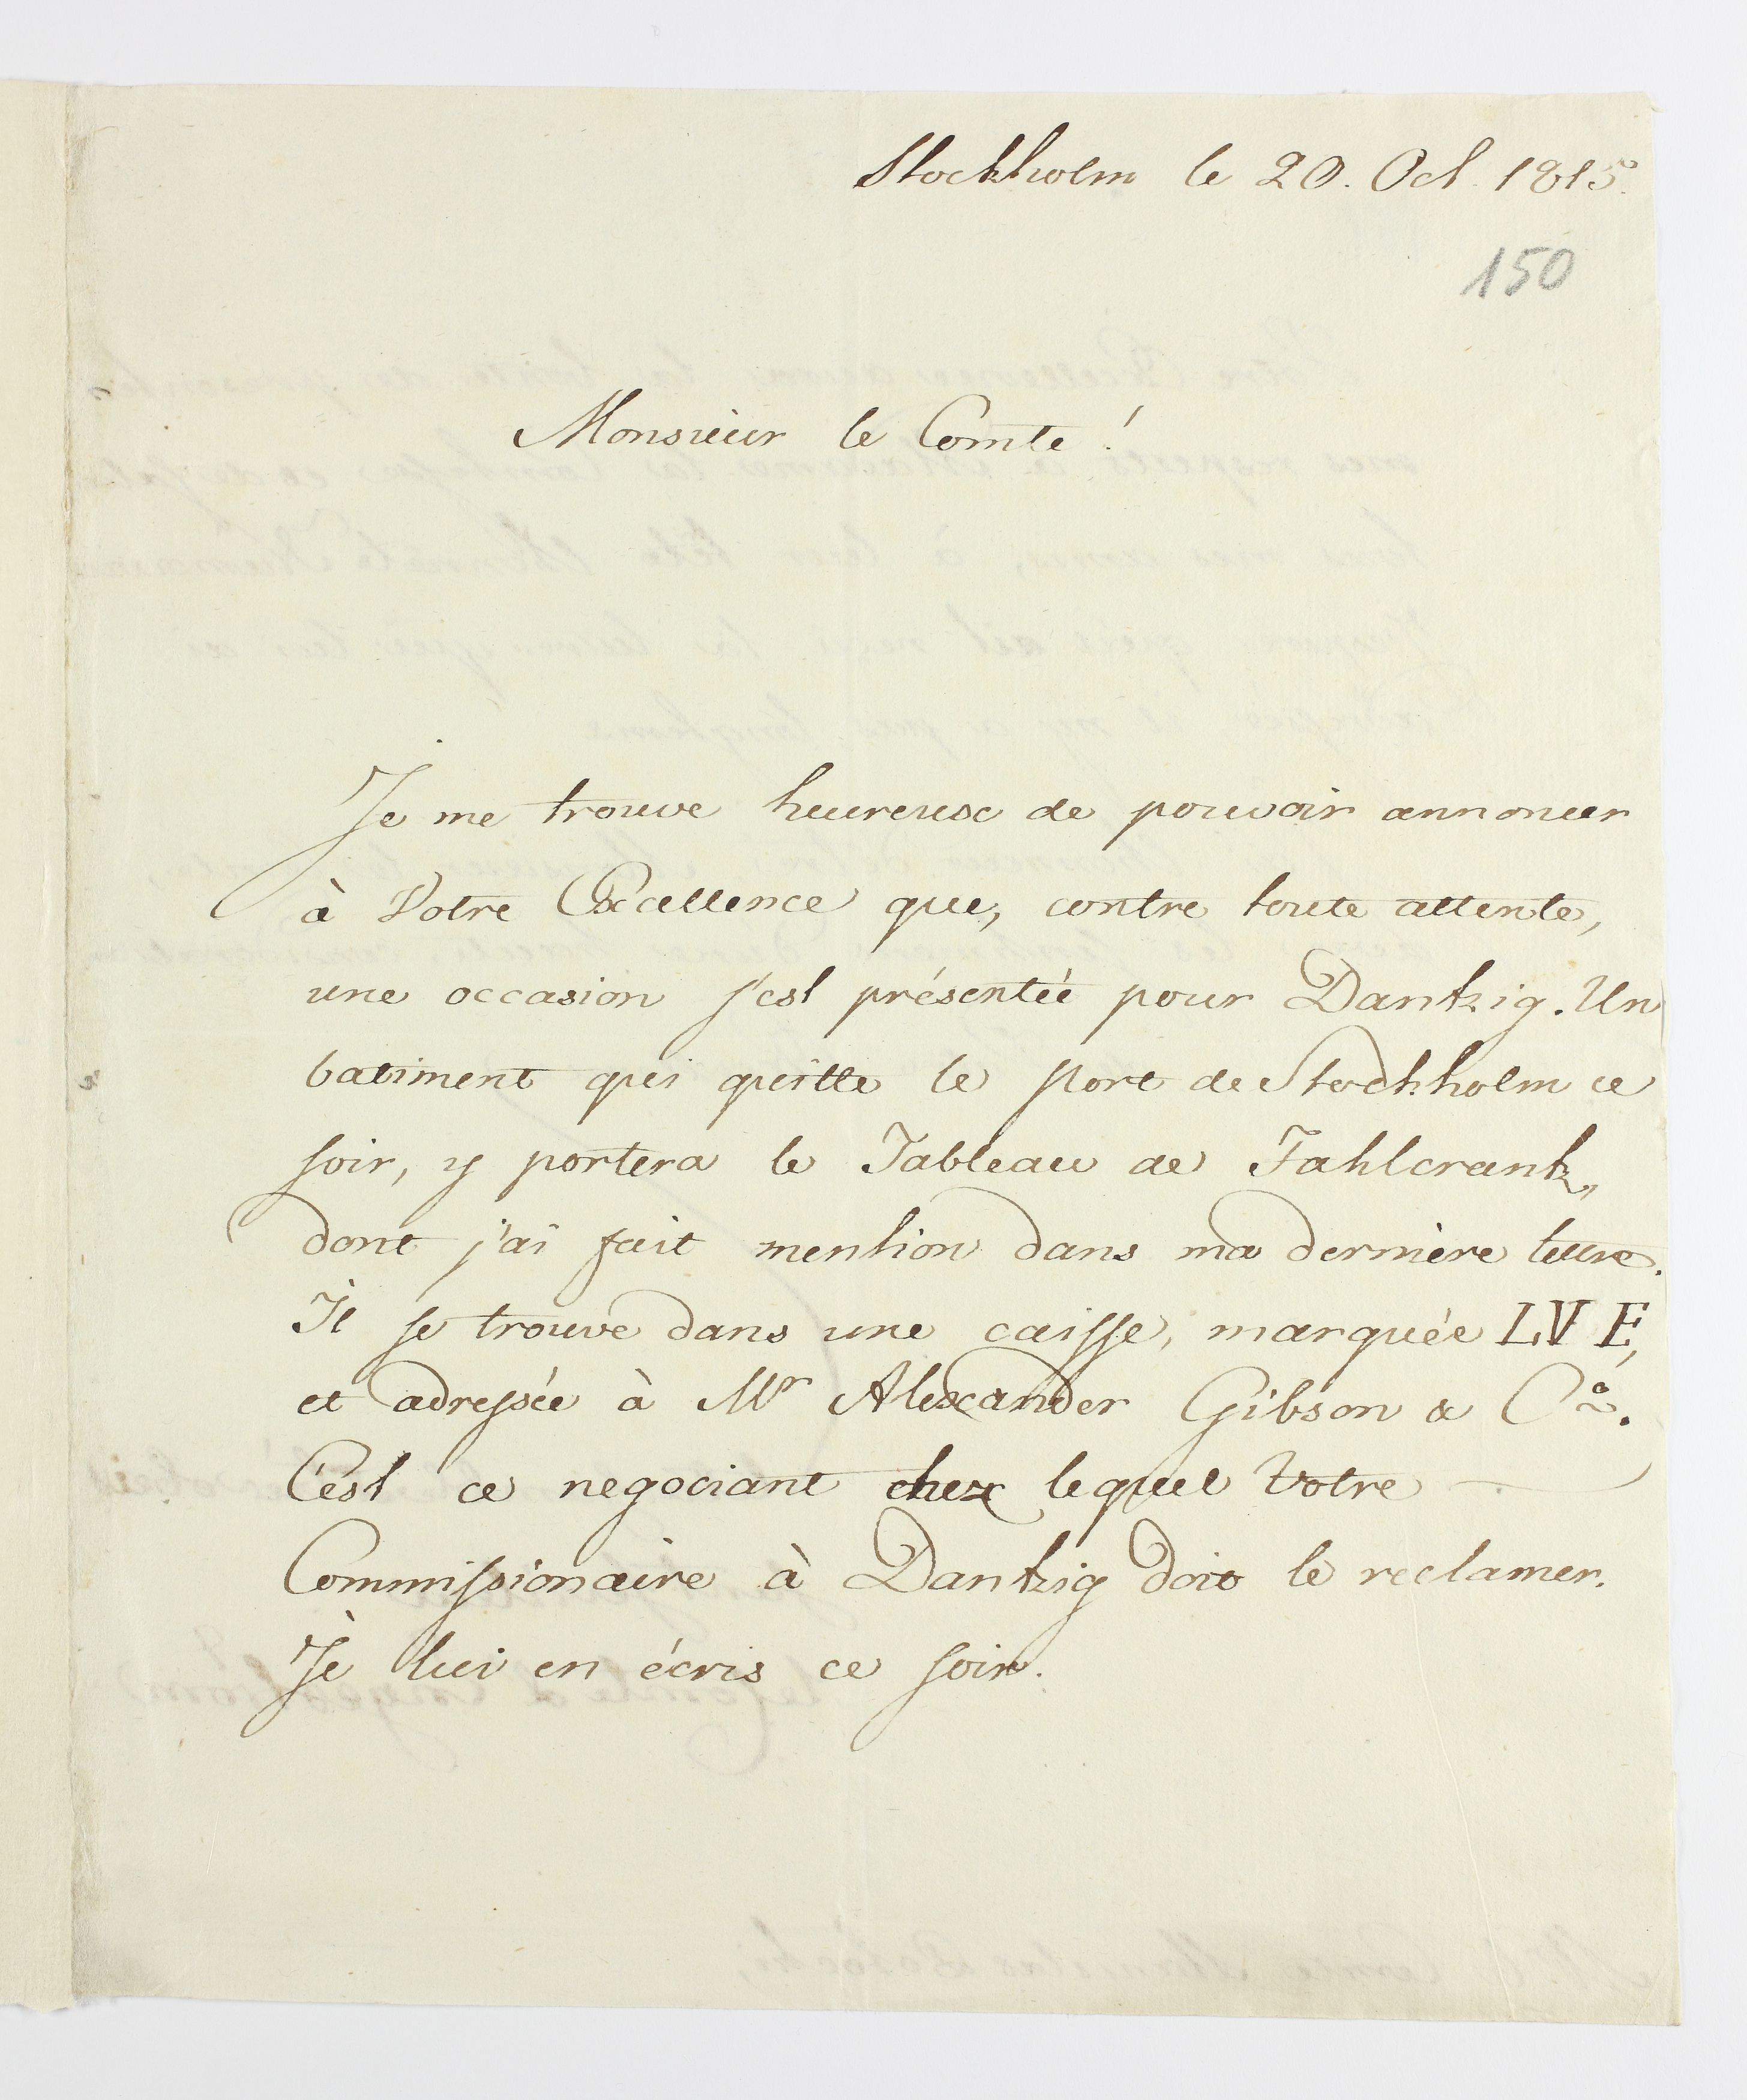 Stockholm le 20. Oct. 1815.
150
Monsieur le Comte!
Je me trouve heureux de pouvoir annoncer
à Votre Excellence que, contre toute attente,
une occasion s'est présentée pour Dantzig. Un
batiment qui quitte le port de Stockholm ce
soir, y portera le Tableau de Fahlcrantz,
dont j'ai fait mention dans ma dernière lettre.
Il se trouve dans une caisse, marquée LVE,
et adressée à Mr Alexander Gibson & Co.
C'est ce negociant chez lequel Votre
Commissionaire à Dantzig doit le reclamer.
Je lui en écris ce soir.